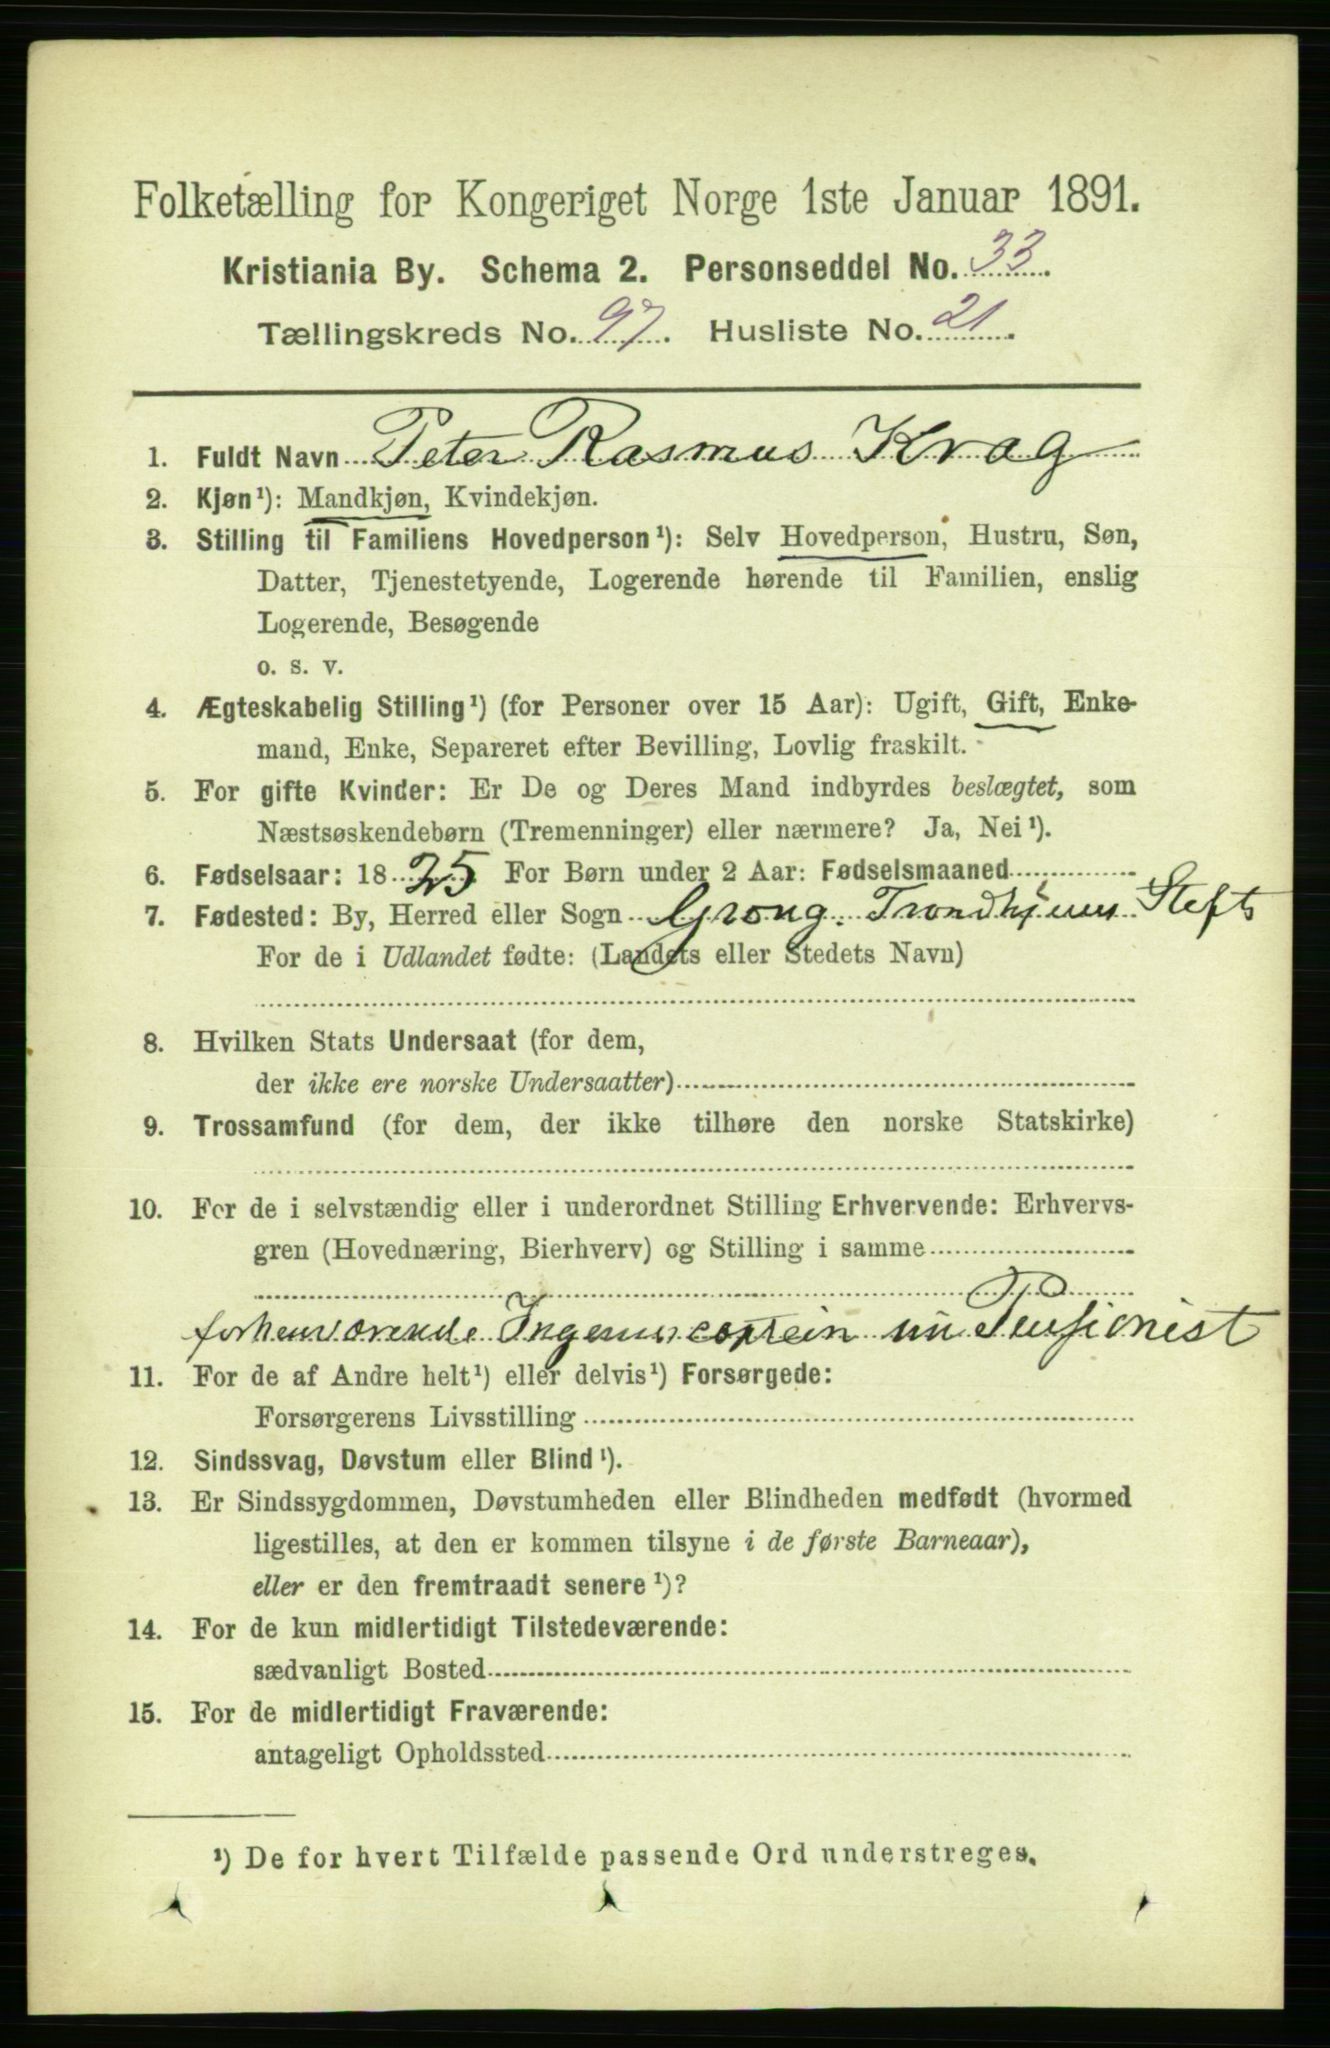 Folketælling for Kongeriget Norge 1ste Januar 1891.
Kristiania By. Schema 2. Personseddel No. 33.
Tællingskreds No. 97. Husliste No. 21.
1. Fuldt Navn Peter Rasmus Krag
2. Kjøn¹): Mandkjøn, Kvindekjøn.
3. Stilling til Familiens Hovedperson¹): Selv Hovedperson, Hustru, Søn,
Datter, Tjenestetyende, Logerende hørende til Familien, enslig
Logerende, Besøgende
o. s. v.
4. Ægteskabelig Stilling¹) (for Personer over 15 Aar): Ugift, Gift, Enke-
mand, Enke, Separeret efter Bevilling, Lovlig fraskilt.
5. For gifte Kvinder: Er De og Deres Mand indbyrdes beslægtet, som
Næstsøskendebørn (Tremenninger) eller nærmere? Ja, Nei¹).
6. Fødselsaar: 1825 For Børn under 2 Aar: Fødselsmaaned
7. Fødested: By, Herred eller Sogn Grong. Trondhjems Stift
For de i Udlandet fødte: (Landets eller Stedets Navn)
8. Hvilken Stats Undersaat (for dem,
der ikke ere norske Undersaatter)
9. Trossamfund (for dem, der ikke tilhøre den norske Statskirke)
10. For de i selvstændig eller i underordnet Stilling Erhvervende: Erhvervs-
gren (Hovednæring, Bierhverv) og Stilling i samme
forhenværende Ingeniørcaptein nu Pensionist
11. For de af Andre helt¹) eller delvis¹) Forsørgede:
Forsørgerens Livsstilling
12. Sindssvag, Døvstum eller Blind¹).
13. Er Sindssygdommen, Døvstumheden eller Blindheden medfødt (hvormed
ligestilles, at den er kommen tilsyne i de første Barneaar),
eller er den fremtraadt senere¹)?
14. For de kun midlertidigt Tilstedeværende:
sædvanligt Bosted
15. For de midlertidigt Fraværende:
antageligt Opholdssted
¹) De for hvert Tilfælde passende Ord understreges.